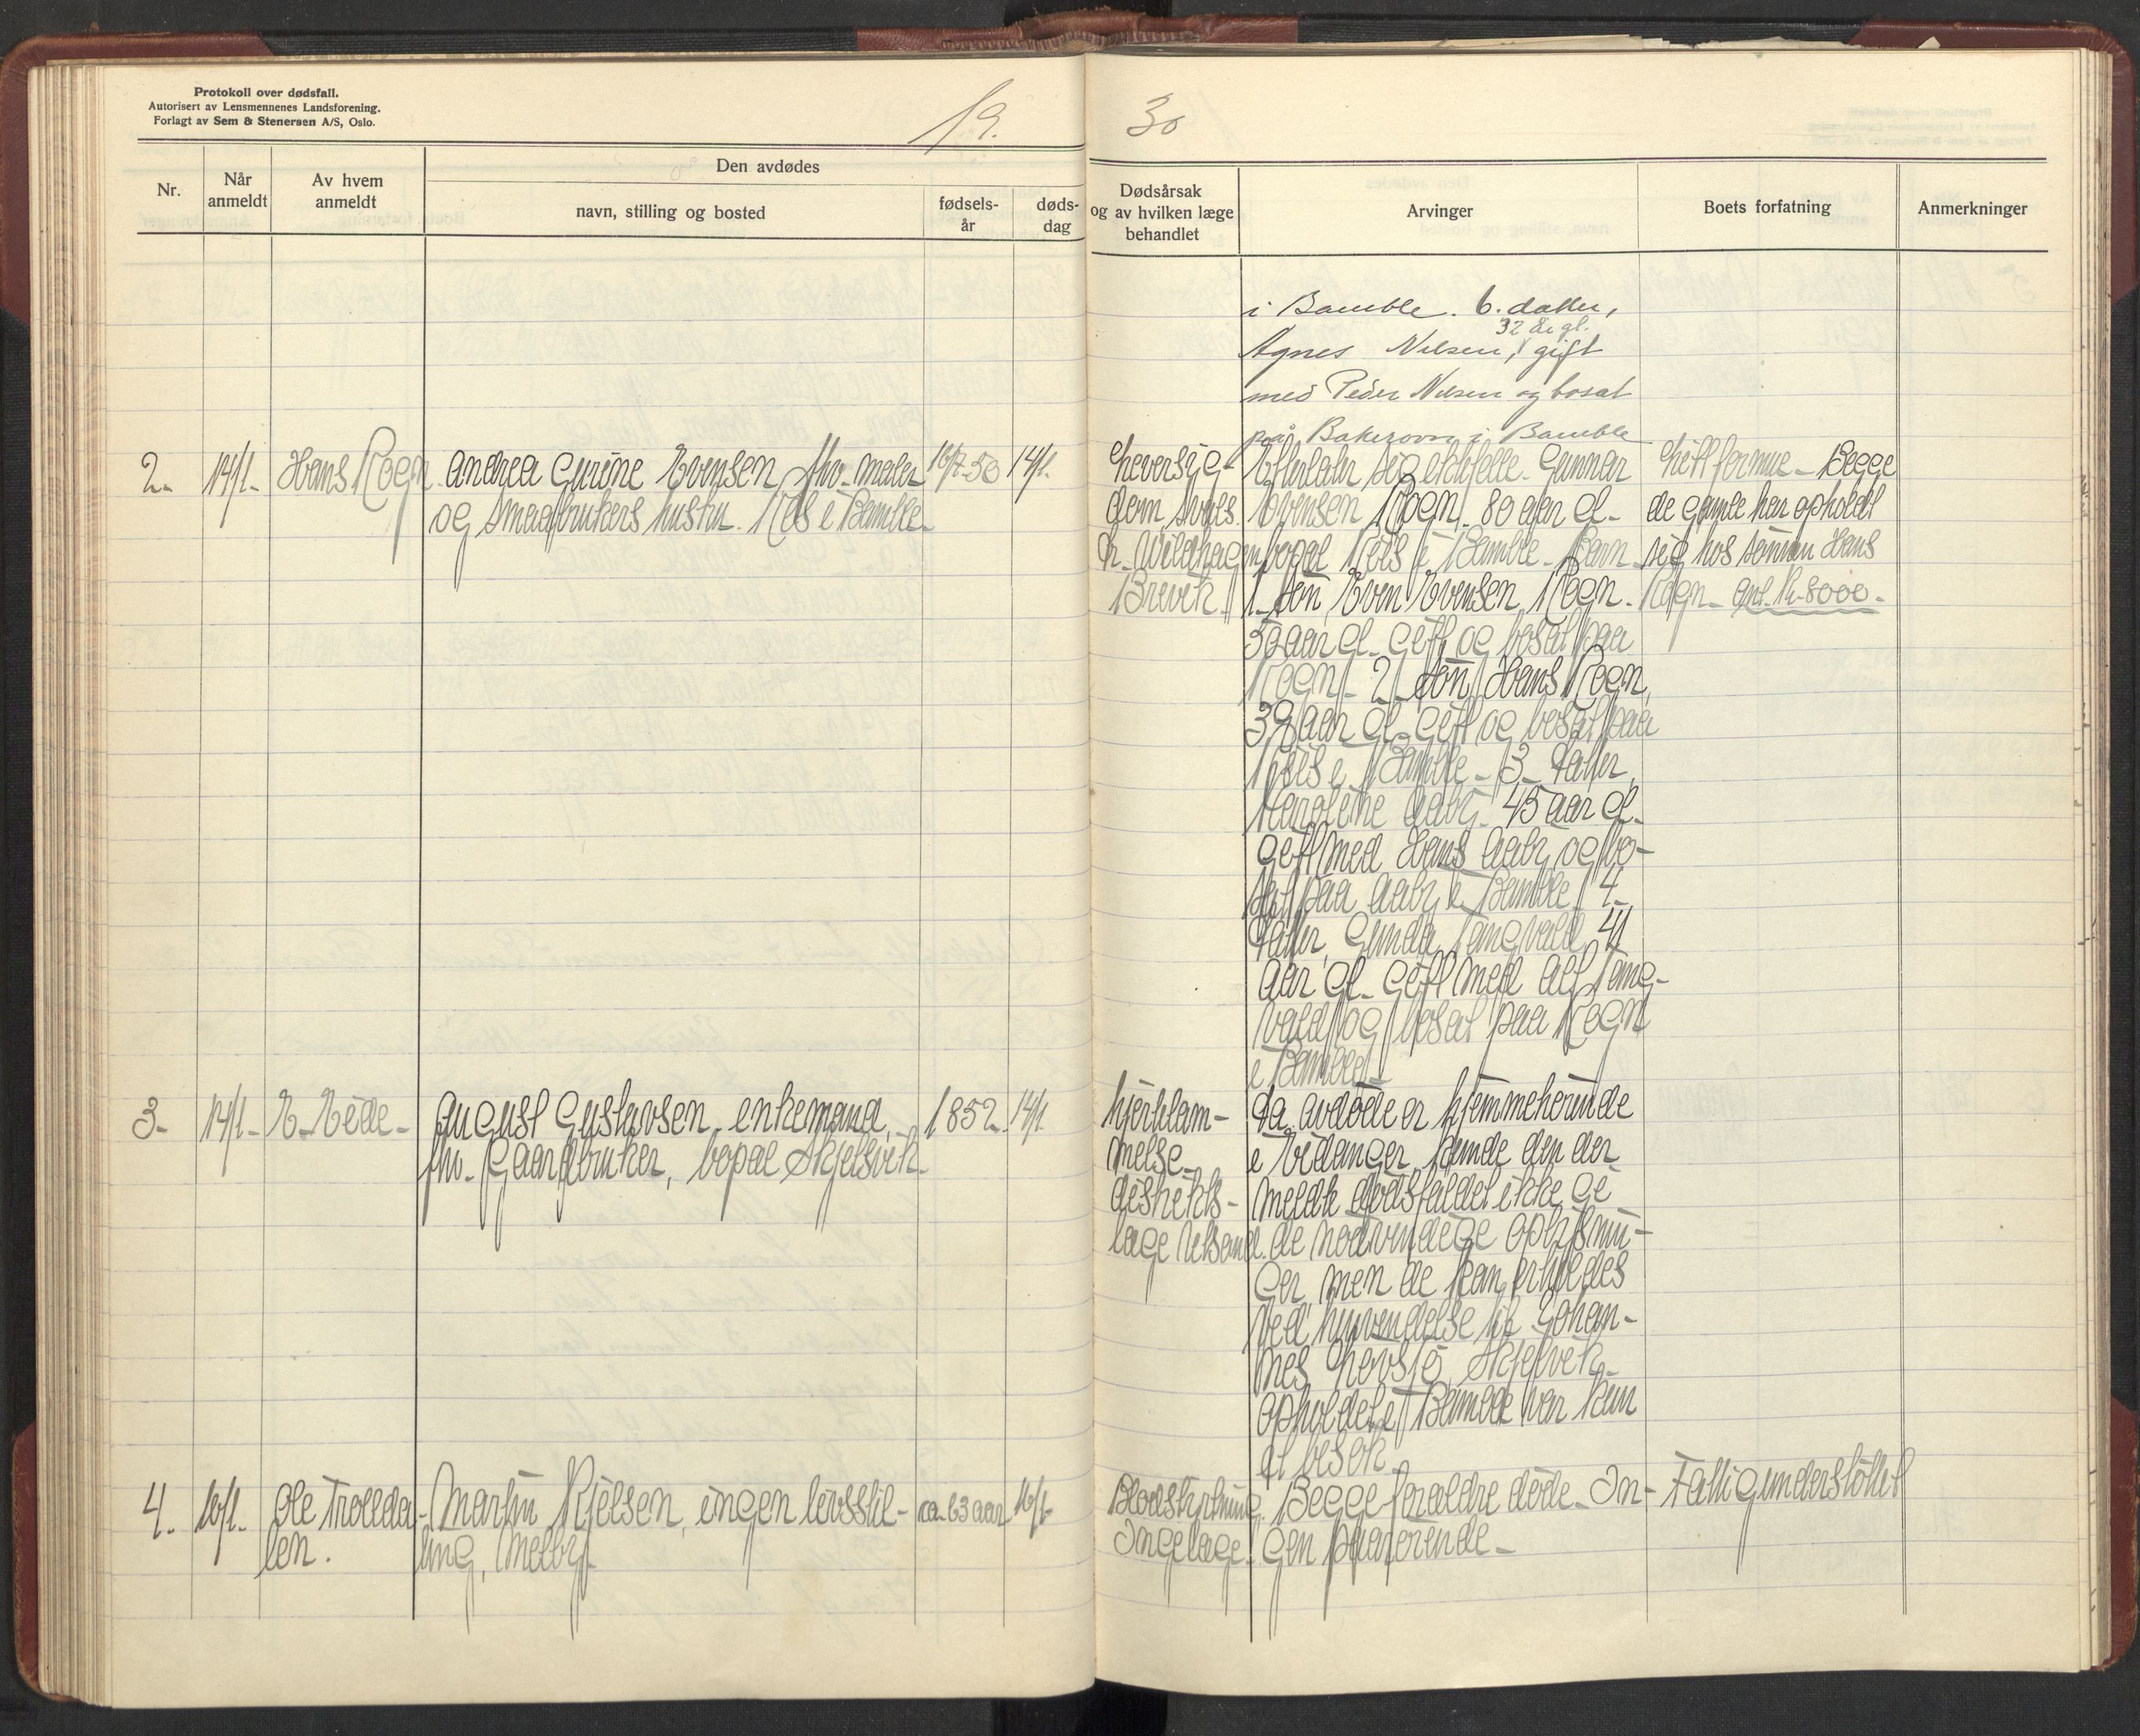 Protokoll over dødsfall.
Autorisert av Lensmennenes Landsforening.
Forlagt av Sem & Stenersen A/S, Oslo.
19.
30
Nr.
Når anmeldt
Av hvem anmeldt
Den avdødes
navn, stilling og bosted
fødsels-år
døds-dag
Dødsårsak og av hvilken læge behandlet
Arvinger
Boets forfatning
Anmerkninger
i Bamble. 6. datter,
32 år gl.
Agnes Nilsen, gift
med Peder Nilsen og bosat
på Bakerovn i Bamble
2. 14/1. Hans Rogn
Andrea Gurine Evensen, fhv. maler
og smaabrukers hustru. i Bamble.
14/1.
Leversyg-
dom, 
Dr. Wildhagen
Brevik.
Efterlater sig ektefelle. Gunnar
Evensen Rogn. 80 aar gl.
bopæl i Bamble. Barn
1. søn Even Evensen Rogn.
50 aar gl. gift og bosat paa
Rogn. 2. søn Hans Rogn,
39 aar gl. gift og bosat paa
i Bamble. 3. datter,
Karoline Aaby. 45 aar gl.
gift med Hans Aaby og bo-
sat paa Aaby i Bamble. 4.
datter, Gunda Tangvald 41
aar gl. gift med Alf Tang-
vald og bosat paa Rogn
i Bamble.
Litt formue. Begge
de gamle har opholdt
sig hos sønnen Hans
Rogn. Ant. kr. 8000.
3. 14/1. E. Eide.
August Gustavsen, enkemand,
fhv. gaardbruker, bopæl Skjelsvik.
1852. 14/1.
Hjertelam-
melse.
distrikts-
læge Ulsand.
Da avdøde er hjemmehørende
i Eidanger, kunde den der
meldte dødsfaldet ikke gi
de nødvendige oplysnin-
ger, men de kan erholdes
ved henvendelse til Johan-
nes Skjelsvik.
Opholdet i Bamble var kun
et besøk.
4. 16/1. Ole Trollda-
len.
Martin Kjelsen, ingen livsstil-
ling, Melby.
ca. 63 aar 16/1.
Blodstyrtning.
Ingen læge.
Begge forældre døde. In-
gen paarørende.
Fattigunderstøttet